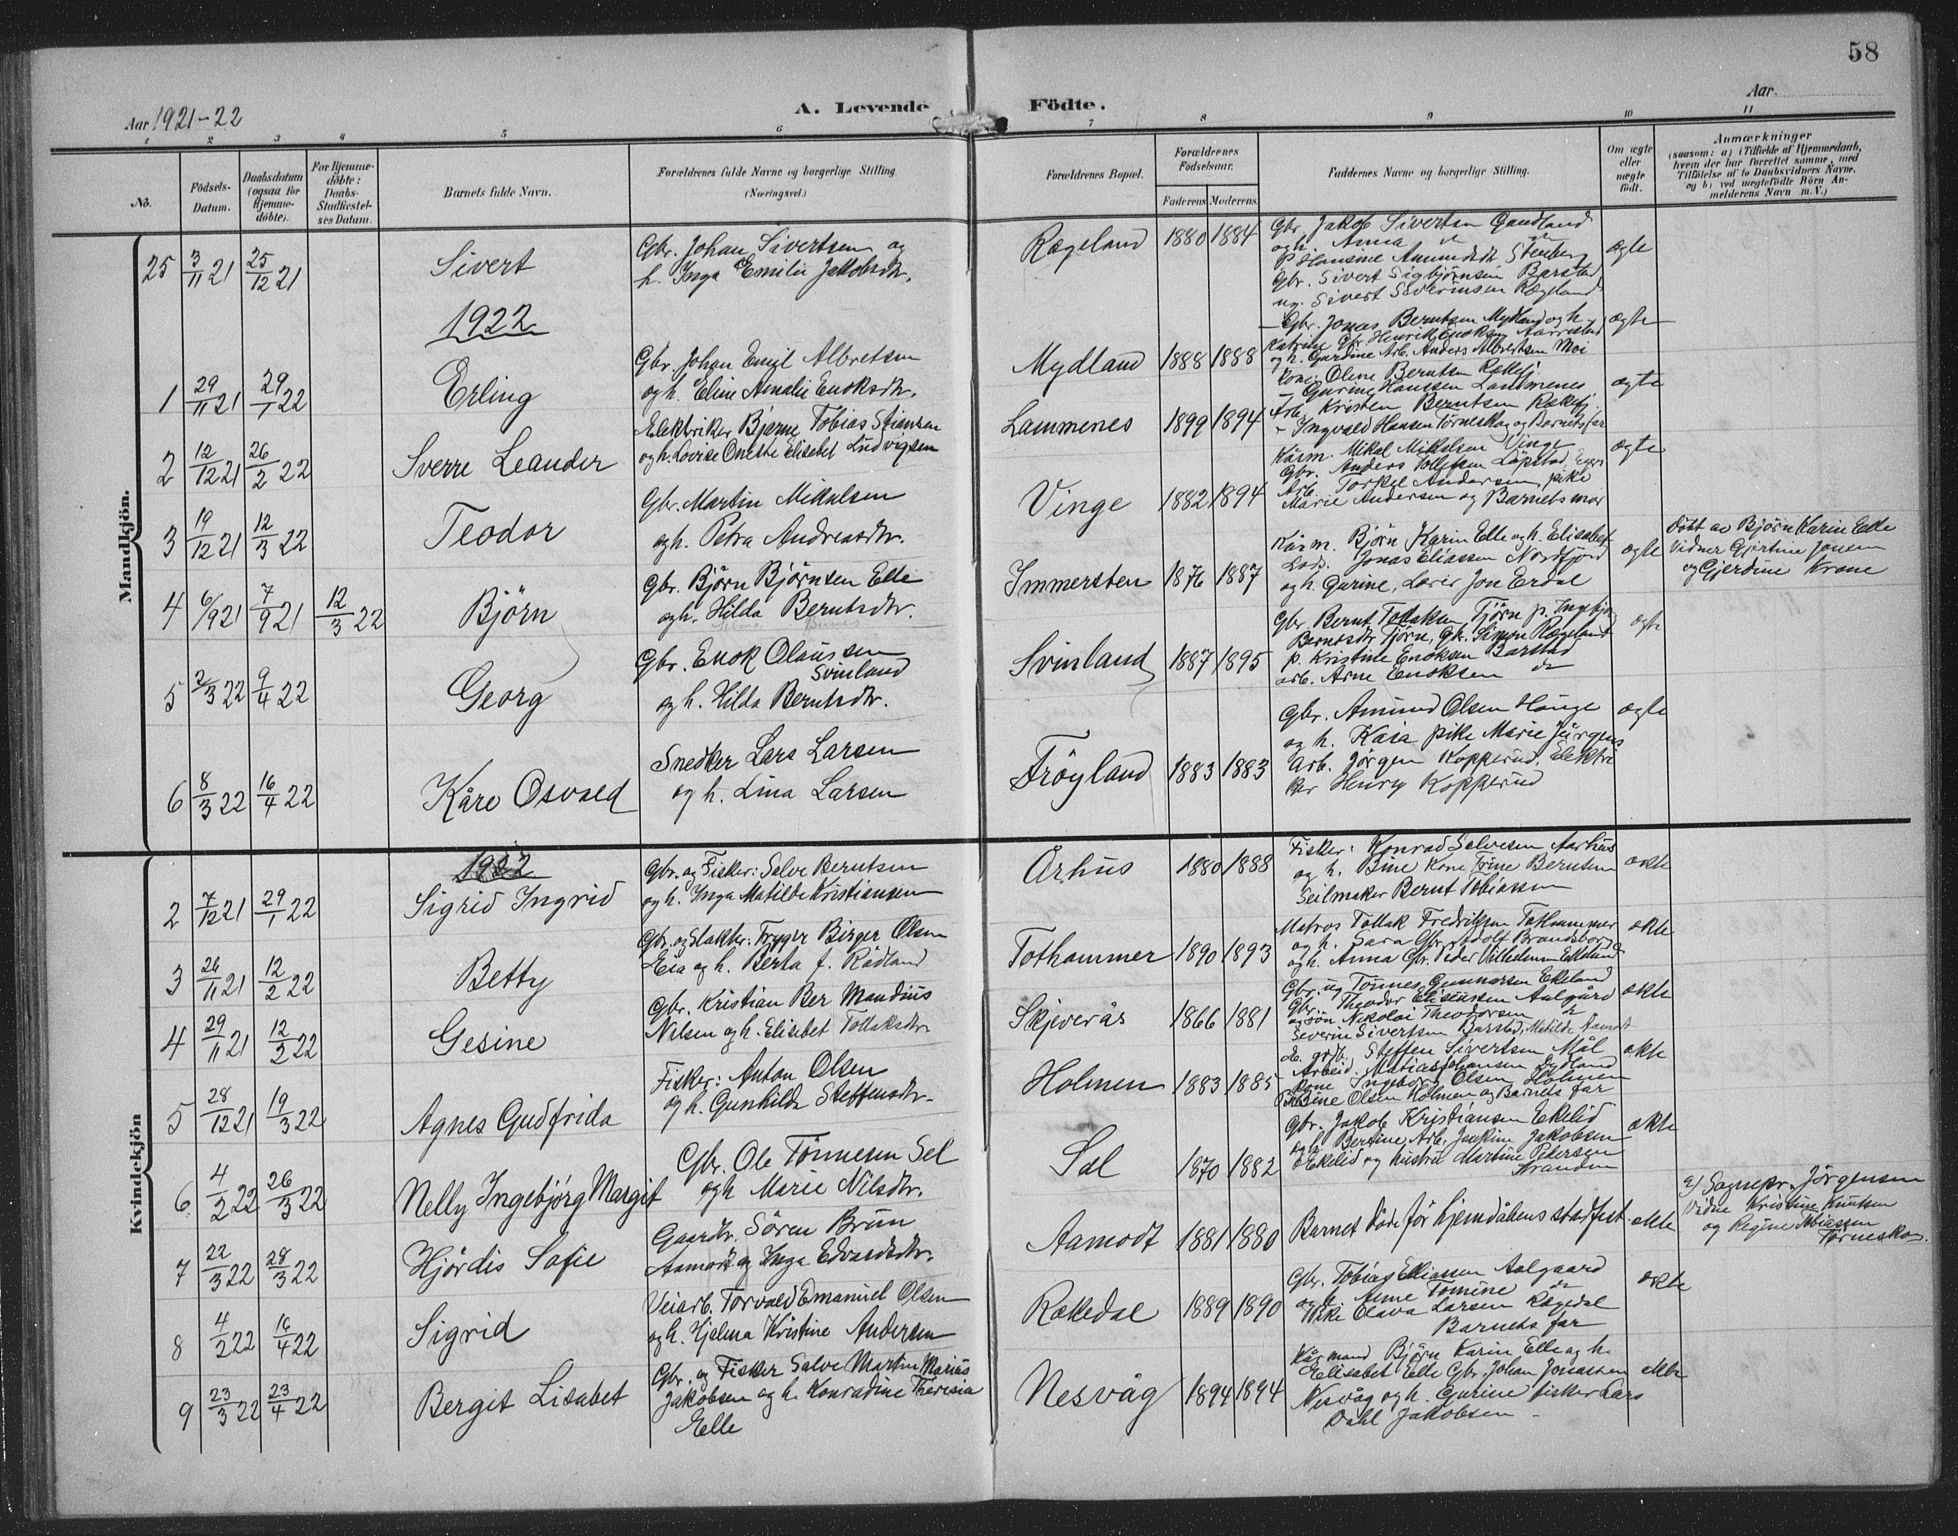 58
Aar 1921-22
A. Levende Födte.
Aar.
1 2 3 4 5 6 7 8 9 10 11
No.
Födsels-Datum.
Daabsdatum (ogsaa for Hjemme-döbte).
For Hjemme-döbte: Daabs-Stadfæstel-ses Datum.
Barnets fulde Navn.
Forældrenes fulde Navne og borgerlige Stilling. (Næringsvei.)
Forældrenes Bopæl.
Forældrenes Födselsaar.
Faderens Moderens
Faddernes Navne og borgerlige Stilling.
Om ægte eller uægte födt.
Anmærkninger
(saasom: a) i Tilfælde af Hjemmedaab,
hvem der har forrettet samme, med
Tilföielse af to Daabsvidners Navne.
og b) ved uægtefödte Börn An-
melderens Navn m. V.)
Mandkjön.
25 3/11 21 25/12 21 Sivert
Gbr. Johan Sivertsen og
h. Inga Emilie Jakobsdtr.
Rægeland 1880 1884
Gbr. Jakob Sivertsen
og h. Anna
Gbr. Sivert Sigbjørnsen Barstad
ug. Sivert Severinsen Rægeland
ægte
1922
1 29/11 21 29/1 22 Erling
Gbr. Johan Emil Albretsen
og h. Eline Amalie Enoksdtr.
Mydland 1888 1888
Gbr. Jonas Berntsen Mydland og h.
Katrine Gbr Henrik Enoksen
og h. Gurdine Arb. Anders Albertsen Moi
ægte
2 12/12 21 26/2 22 Sverre Leander
Elektriker Bjarne Tobias Stiansen
og h. Lovise Oneste Elisabet Ludvigsen
Lammenes 1899 1894
kone Oline Berntsen Rækefj.
Gurine Hanssen Lammenes
Arb. Kristen Berntsen Rækefj.
Ingvald Hansen Törneskog og Barnets far
ægte
3 19/12 21 12/3 22 Teodor
Gbr. Martin Mikalsen
og h. Petra Andreasdtr.
Vinge 1882 1894
Kårm. Mikal Mikalsen Vinge
Gbr. Anders Tollefsen
Arb. Torkel Andersen, pike
Marie Andersen og Barnets mor
ægte
4 6/9 21 7/9 21 12/3 22 Björn
Gbr. Björn Björnsen Elle
og h. Hilda Berntsdtr.
Immersten 1876 1887
Kårm. Björn Karin Elle og h. Elisabet
Lods. Jonas Eliassen Nordfjord
og h. Gurine, Lærer Jon Erdal
ægte
Döbt av Björn Karin Elle
Vidner Gjertine Jonsen
og Gjerdine Krane
5 2/3 22 9/4 22 Georg
Gbr. Enok Olaussen
Svinland
og h. Hilda Berntsdtr.
Svinland 1887 1895
Gbr. Bernt Tollaksen Tjörn p. Ingebjør
Berntsdtr Tjörn, Gbr. Simon Rægeland
p. Kristine Enoksen Barstad
arb. Arne Enoksen do
ægte
6 8/3 22 16/4 22 Kåre Osvald
Snedker Lars Larsen
og h. Lina Larsen
Fröyland 1883 1883
Gbr. Amund Olsen Hauge
og h. Kaia pike Marie Jörgens
Arb. Jörgen Kopperud. Elektri
ker Henry Kopperud
ægte
Kvindekjön
1922
2 7/12 21 29/1 22 Sigrid Ingrid
Gbr. og Fisker: Salve Berntsen
og h. Inga Matilde Kristiansen
Århus 1880 1888
Fisker: Konrad Salvesen Aarhus
og h. Bine Kone Trine Berntsen
Seilmaker Bernt Tobiassen
ækte
3 26/11 21 12/2 22 Betty
Gbr. og Slakter: Trygver Birger Olsen
Eia og h. Berta f. Rådland
Tothammer 1890 1893
Matros Tollak Fredriksen Tothammer
og h. Sara Gbr. Adolf
og h. Anna Gbr. Peder Vilhelmsen Ekeland
ækte
4 29/11 21 12/2 22 Gesine
Gbr. Kristian Ber Mandius
Nilsen og h. Elisebet Tollaksdtr.
Skjeverås 1866 1881
Gbr. ug Tönnes Gunnarsen Ekeland
Gbr. Theodor Elisæussen Aalgård
og sön Nikolai Theodorsen
Severine Sivertsen Barstad, Matilde Aamodt
ækte
5 28/12 21 19/3 22 Agnes Gudfrida
Fisker: Anton Olsen
og h. Gunhilda Steffensdtr.
Holmen 1883 1885
Steffen Sivertsen Mål
Arbeid. Matias Johansen Jydland
Kone Ingeborg Olsen Holmen
Bine Olsen Holmen og Barnets far
ækte
6 4/2 22 26/3 22 Nelly Ingebjörg Margit
Gbr. Ole Tönnesen Sel
og h Marie Nilsdtr.
Sæl 1870 1882
Gbr. Jakob Kristiansen Ekelid
og h Bertine, Arb. Joakim Jakobsen
Ekelid og hustru Martine Pedersen
Stranden
ækte
7 22/3 22 28/3 22 Hjördis Sofie
Gaardbr. Sören Brun
Aamodt og Inga Edvardsdtr.
Aamodt 1881 1880
Barnet döde för hjemdåbens stadfest.
ekte
a) Sognepr. Jörgensen
Vidne Kristine Knutsen
og Regine Tobiassen
Törneskog.
8 4/2 22 16/4 22 Sigrid
Veiarb. Torvald Emanuel Olsen
og h. Hjelma Kristine Andersen
Rækedal 1889 1890
Gbr. Tobias Elliassen Aalgaard
og h. Anne Tomine do
Pike Olava Larsen Rægedal
Barnets far
ækte
9 23/3 22 23/4 22 Bergit Lisabet
Gbr. og Fisker Salve Martin Marius
Jakobsen og h. Konradine Theresia
Elle
Nesvåg 1894 1894
Kårmand Björn Karin Elle og h.
Elisabet Elle Gbr. Johan Jonassen
Nesvåg og h. Gurine fisker Lars
Dahl Jakobsen
ekte